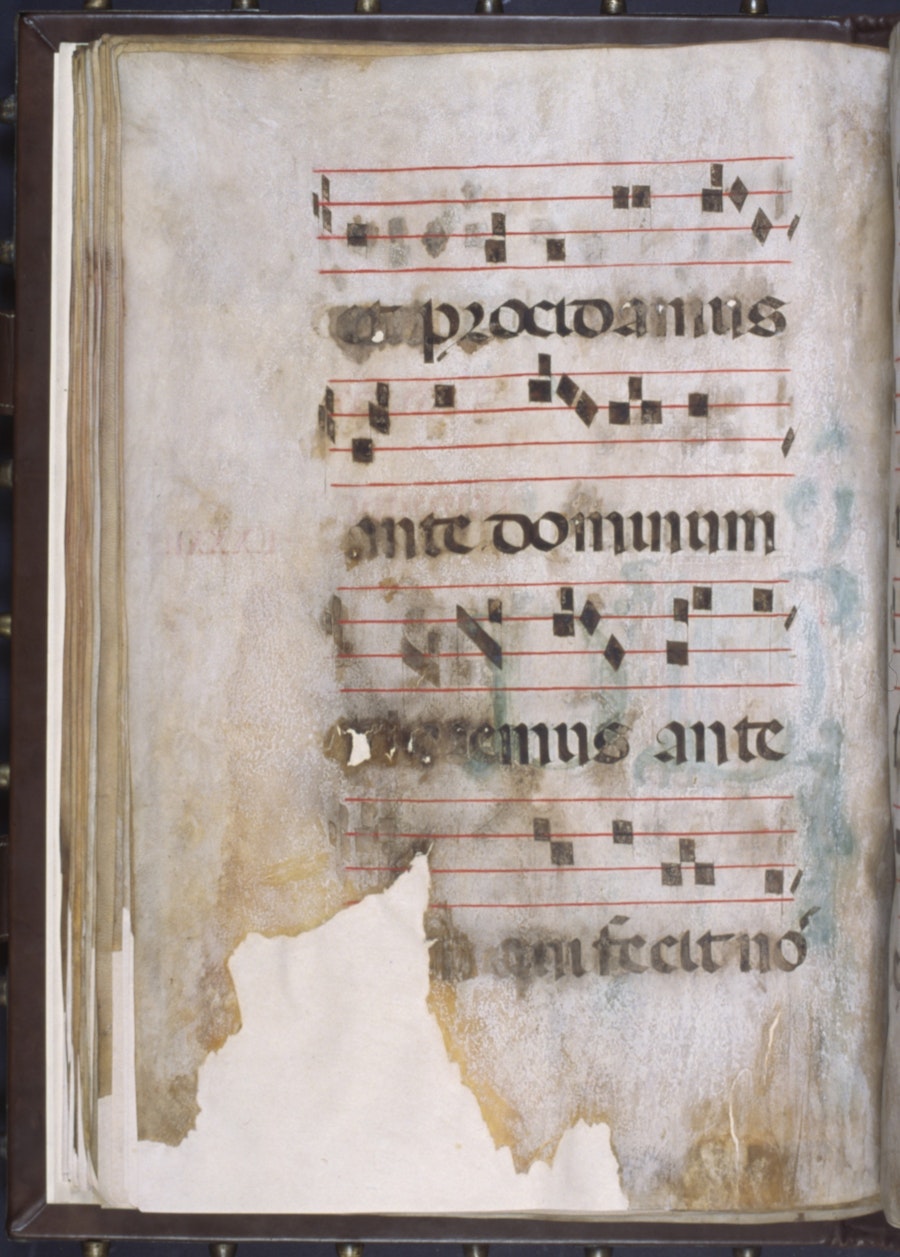 et procidamus
ante dominum
ploremus ante
qui fecit nó